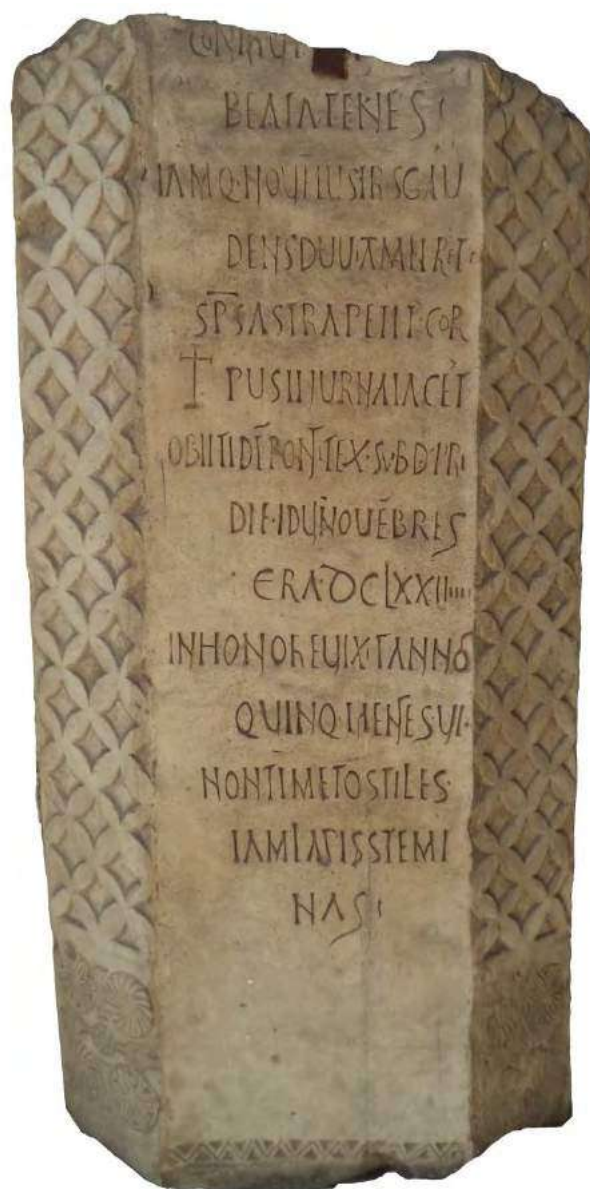 BEATATENES
IAMQ·NOUILUSTRSGAU
SP̄SASTRAPETIT·COR
† PUSINURNAIACET
OBIITIDĒPONTIEX·SUBD·PRI
DIE·IDUNOUĒBRES
ERA·DCLXXUIIII
INHONOREUIXITANNO
QUINQ·MENESUI·
NONTIMETOSTILES
IAMLAPISSTEMI
NAS